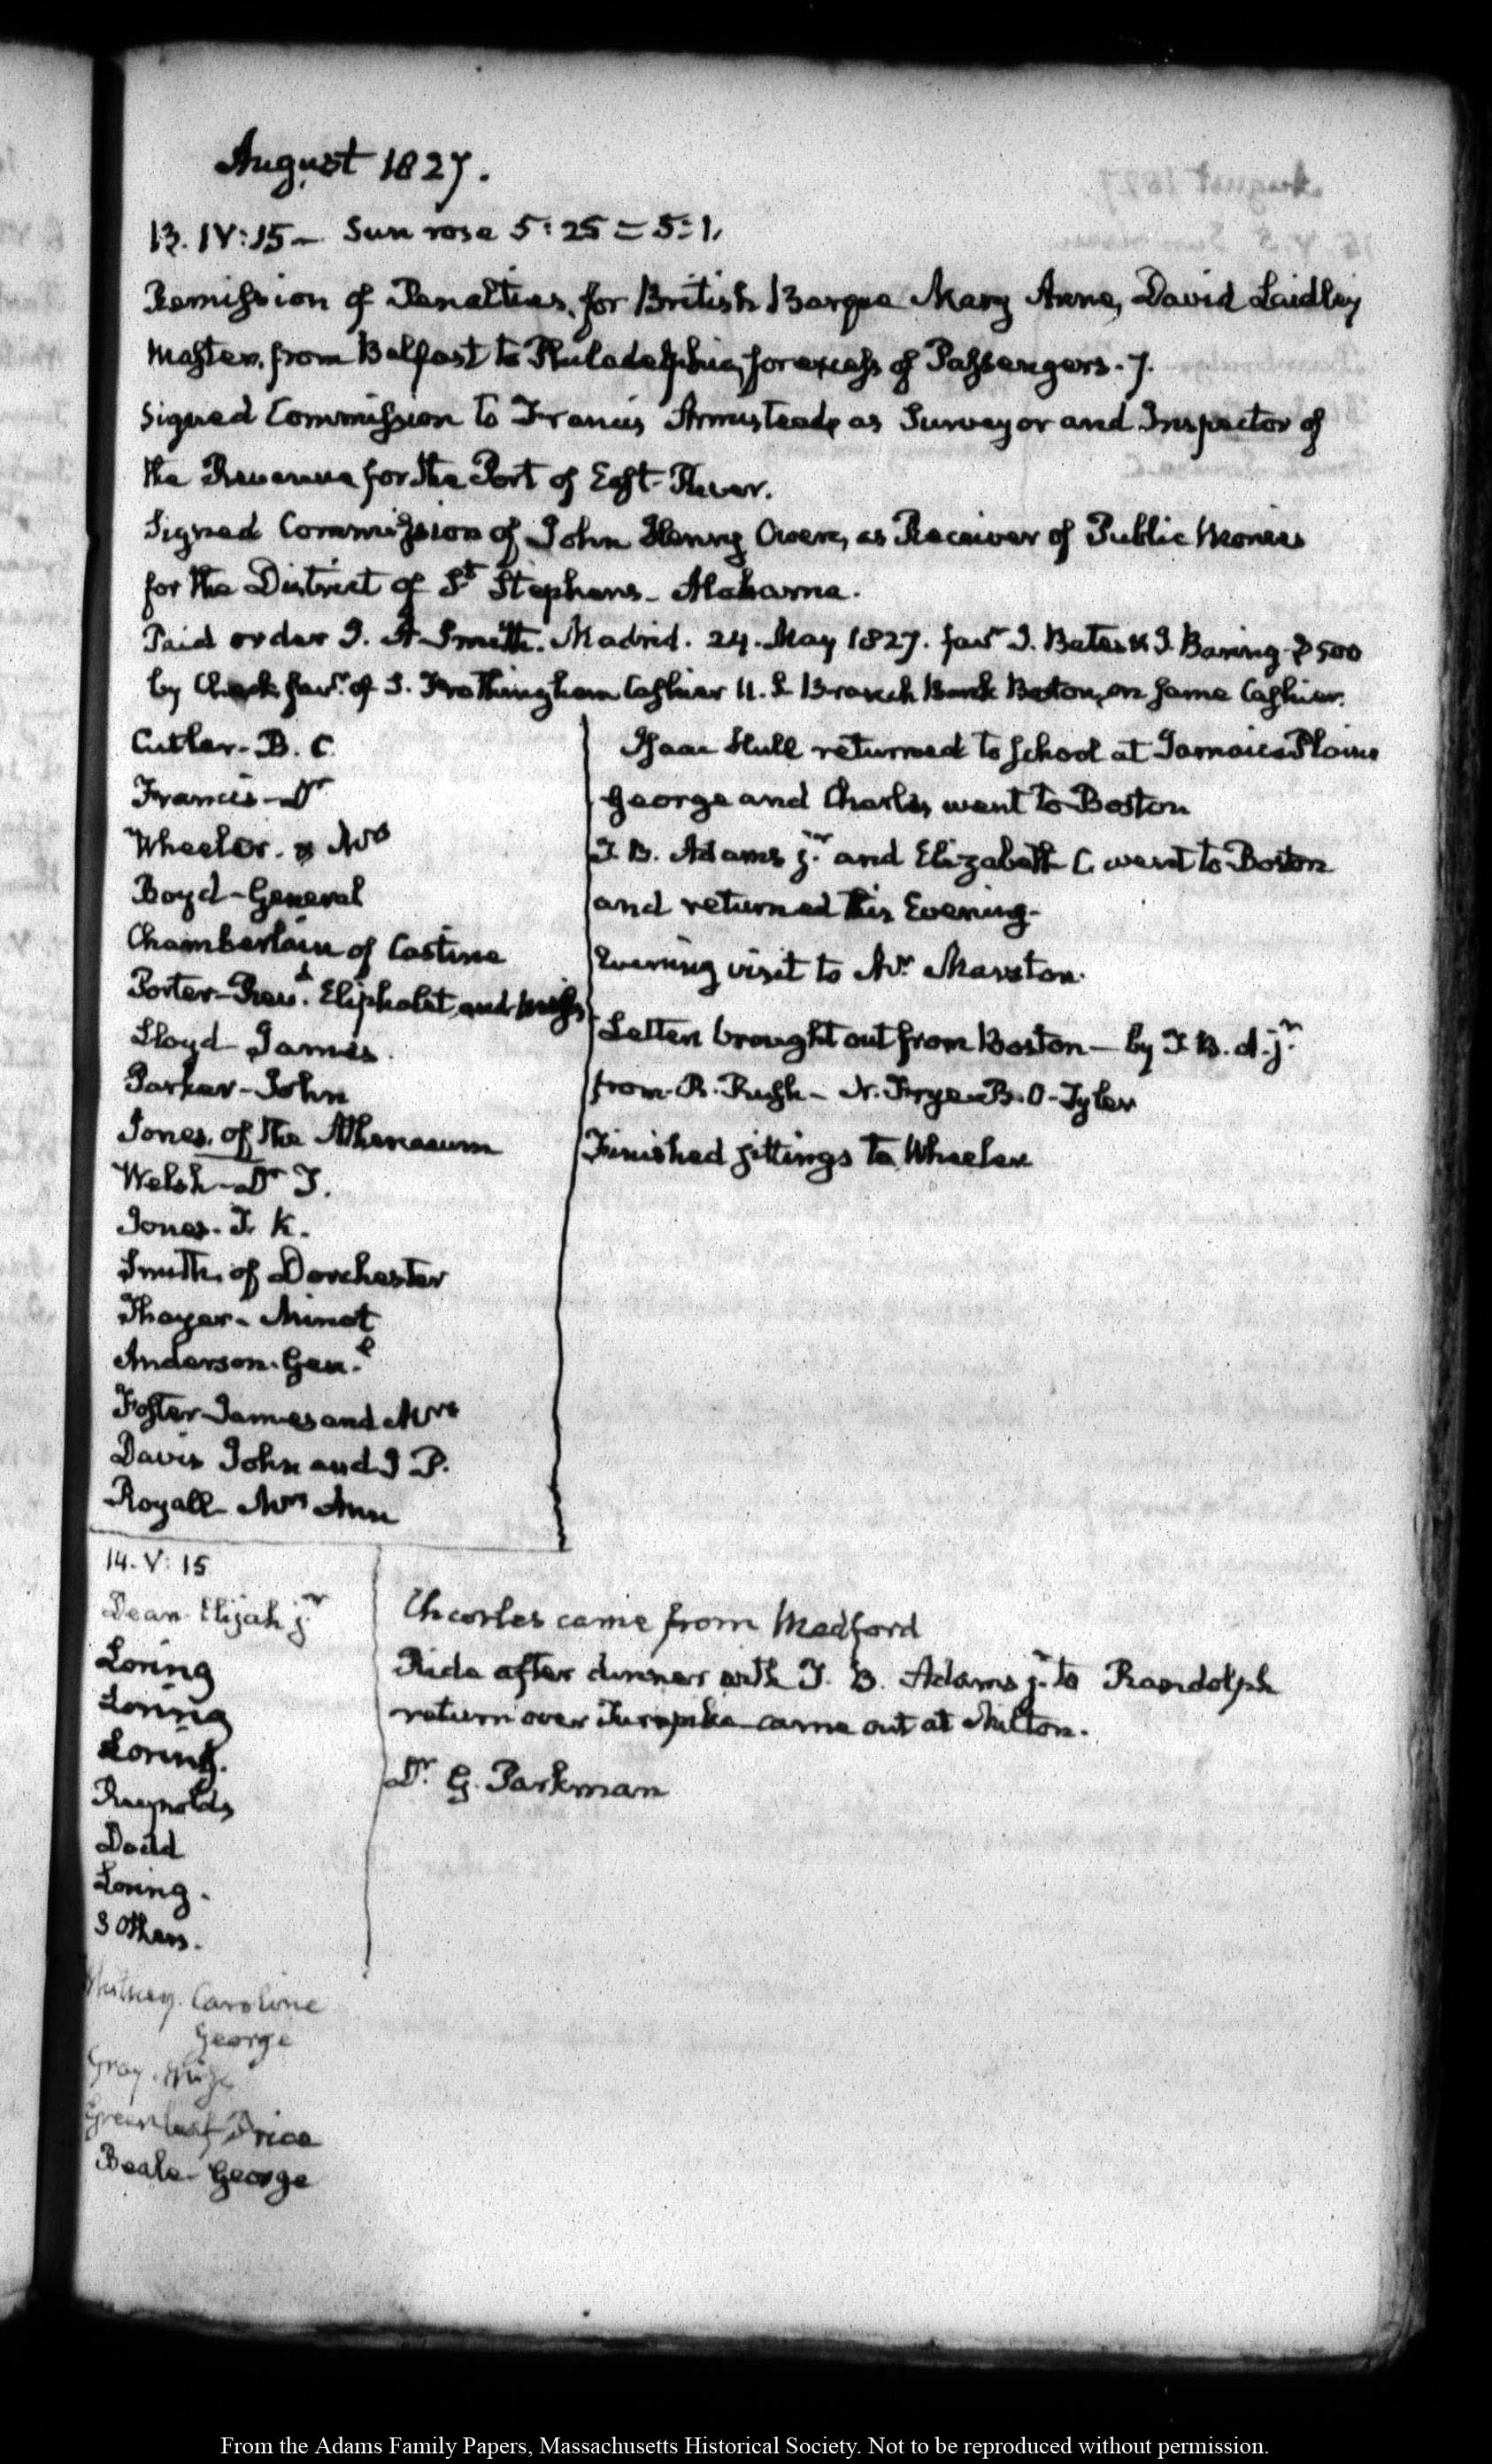 August 1827.
13. IV:15 — Sun rose 5:25 = 5:1,
Remission of Penalties, for British Barque Mary Anne, David Laidley
Master, from Belfast to Philadelphia, for excess of Passengers. 7.
Signed Commission to Francis Armistead, as Surveyor and Inspector of
the Revenue for the Port of East-River.
Signed Commission of John Henry Owen, as Receiver of Public Monies
for the District of St Stephens — Alabama.
Paid order J. A. Smith. Madrid. 24. May 1827. favr J. Bates & J. Baring 500
by Check favr. of S. Frothingham Cashier U.S. Branch Bank Boston, on same Cashier.
Cutler — B. C.
Francis — Dr
Wheeler. & Mrs
Boyd — General
Chamberlain of Castine
Porter — Revd. Eliphalet and
Lloyd James.
Parker — John
Jones, of the Athenaeum
Welsh — Dr T.
Jones — T. K.
Smith, of Dorchester
Thayer — Minot
Anderson. Genl.
Foster James and Mrs
Davis John and I P.
Royall Mrs Ann
Isaac Hull returned to School at Jamaica Plains
George and Charles went to Boston
T. B. Adams jr. and Elizabeth C. went to Boston
and returned this Evening.
Evening visit to Mr. Marston.
Letters brought out from Boston — by T. B. A. jr.
from R. Rush — N. Frye B. O. Tyler
Finished sittings to Wheeler
14. V:15
Dean Elijah jr
Loring
Loring
Loring.
Reynolds
Dodd
Loring.
3 Others.
Whitney. Caroline
George
Gray. Miss
Greenleaf Price
Beale — George
Charles came from Medford
Ride after dinner with T. B. Adams jr. to Randolph
return over Turnpike — came out at Milton.
Dr. G. Parkman
From the Adams Family Papers, Massachusetts Historical Society. Not to be reproduced without permission.